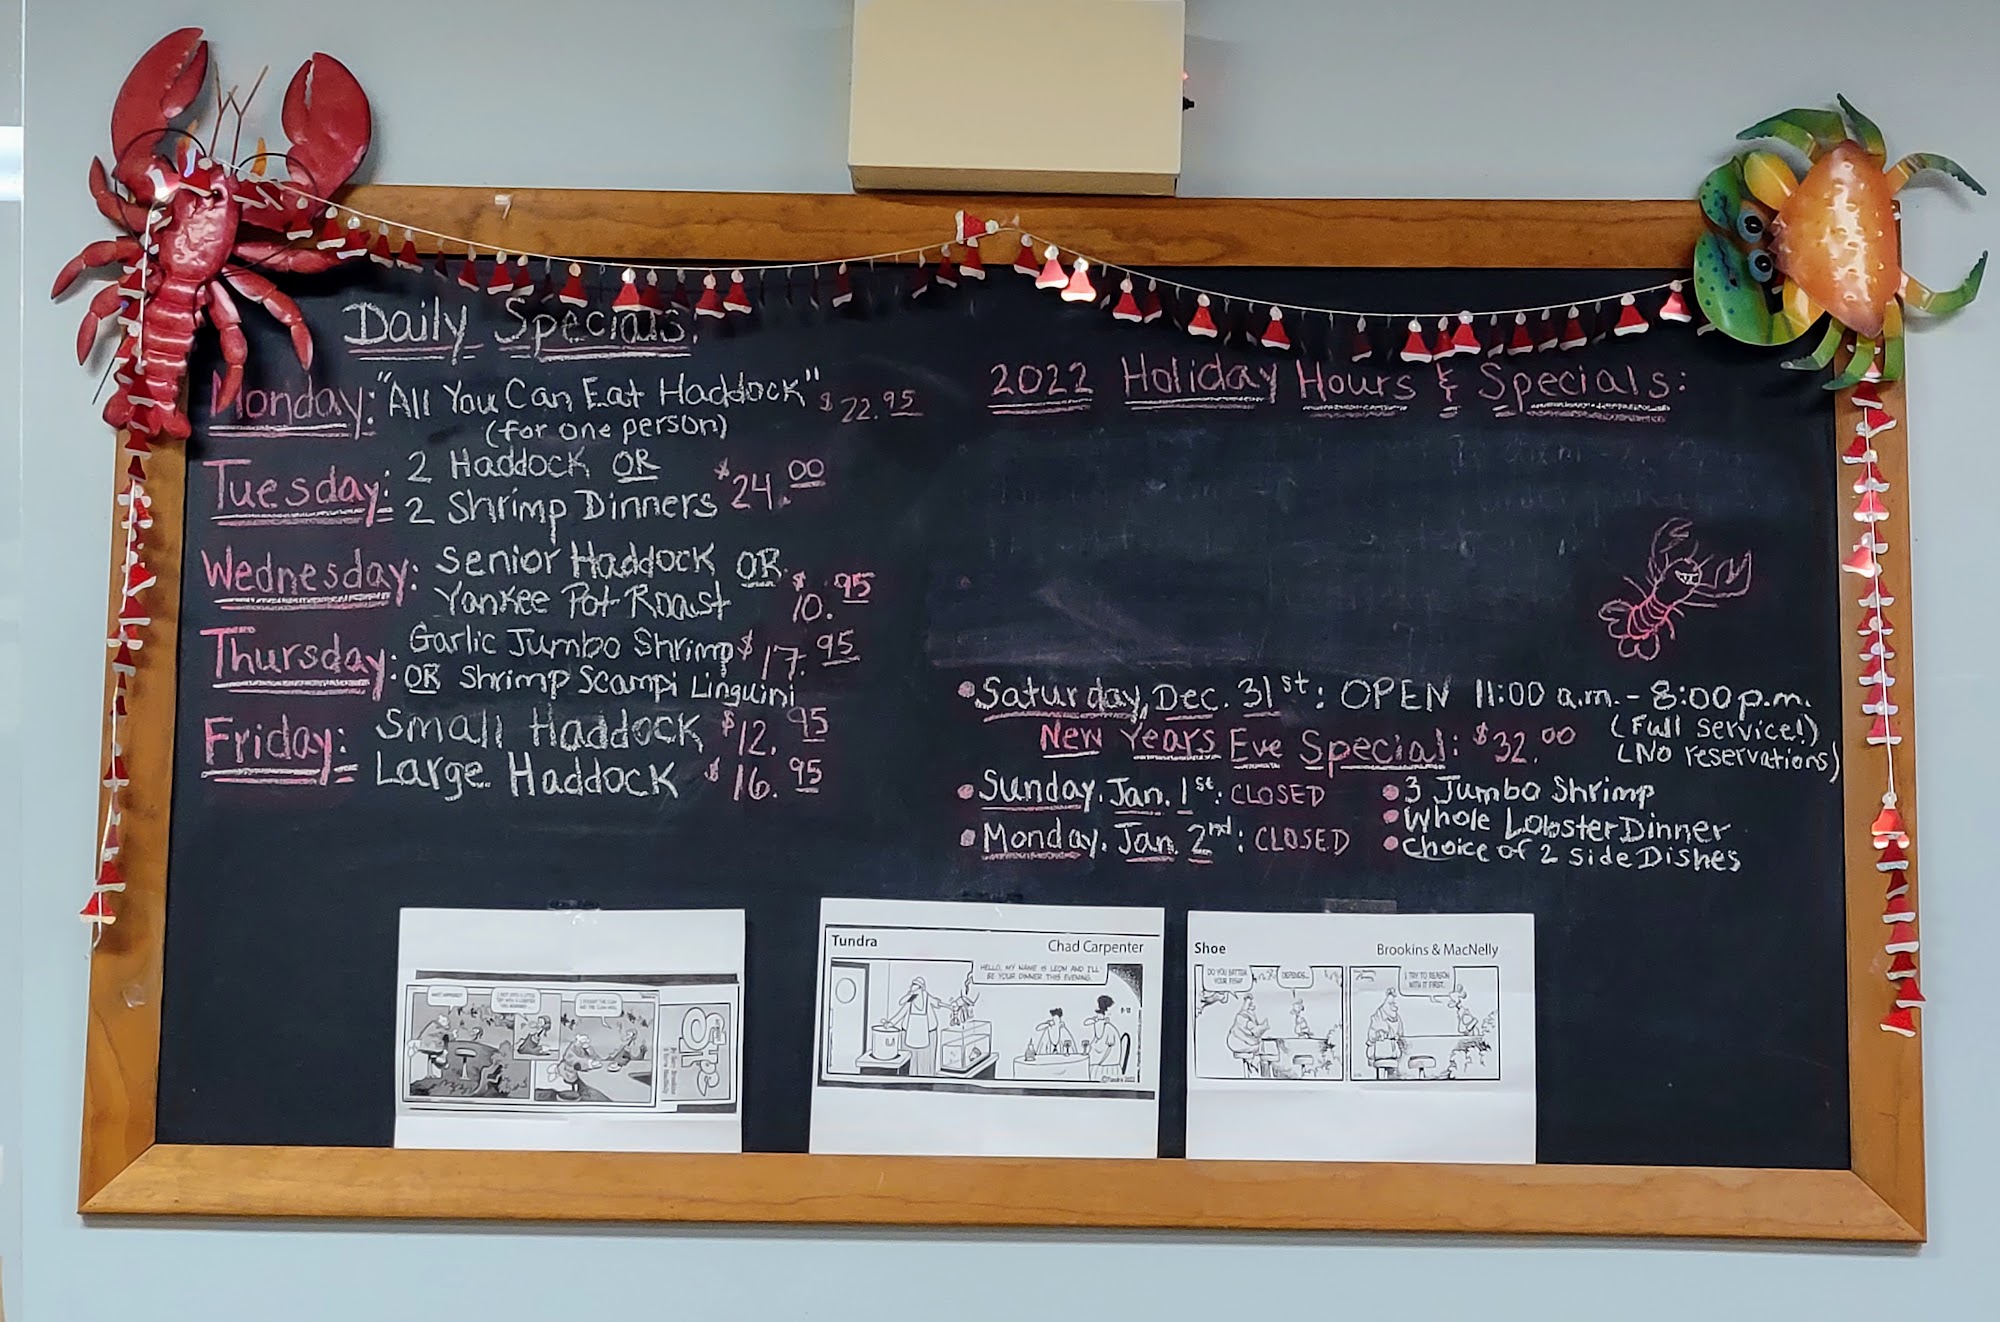 Daily Specials:
Monday: "All You Can Eat Haddock" $22.95
(for one person)
Tuesday: 2 Haddock OR
2 Shrimp Dinners $24.00
Wednesday: Senior Haddock OR
Yankee Pot Roast $10.95
Thursday: Garlic Jumbo Shrimp $17.95
OR Shrimp Scampi Linguini
Friday: Small Haddock $12.95
Large Haddock $16.95
2022 Holiday Hours & Specials:
• Saturday, Dec. 31st: OPEN 11:00 a.m. - 8:00 p.m.
(Full service!)
New Years Eve Special: $32.00
(No reservations)
• Sunday. Jan. 1st: CLOSED
• Monday. Jan. 2nd: CLOSED
• 3 Jumbo Shrimp
• Whole Lobster Dinner
• Choice of 2 Side Dishes
WHAT HAPPENED?
SHOE
Tundra Chad Carpenter
HELLO, MY NAME IS LEON AND I'LL
BE YOUR DINNER THIS EVENING.
©Tundra 2022
Shoe Brookins & MacNelly
DO YOU BATTER
YOUR FISH?
DEPENDS...
I TRY TO REASON
WITH IT FIRST.